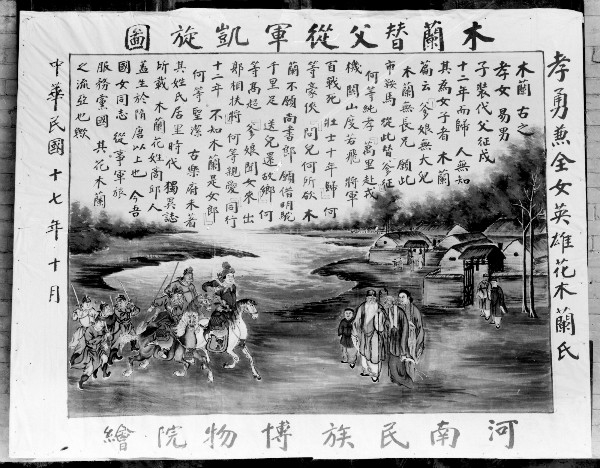 木蘭替父從軍凱旋圖
孝勇兼全女英雄花木蘭氏
木蘭 古之
孝女 易男
子裝 代父征戍
十二年而歸 人無知
其為女子者 木蘭
篇云 爹娘無大兒
木蘭無長兄 願此
市鞍馬 從此替爹征
何等純孝 萬里赴戎
機 關山度若飛 將軍
百戰死 壯士十年歸 何
等豪俠 問兒何所欲 木
蘭不願尚書郎 願借明駝
千里足 送兒還故鄉 何
等高超 爹娘聞女來 出
郭相扶將 何等親愛 同行
十二年 不知木蘭是女郎
何等聖潔 古樂府未著
其姓氏居里時代 獨異誌
所載 木蘭花姓商邱人
蓋生於隋唐以上也 今吾
國女同志 從事軍旅
服務黨國 其花木蘭
之流亞也歟
中華民國十七年十月
河南民族博物院繪